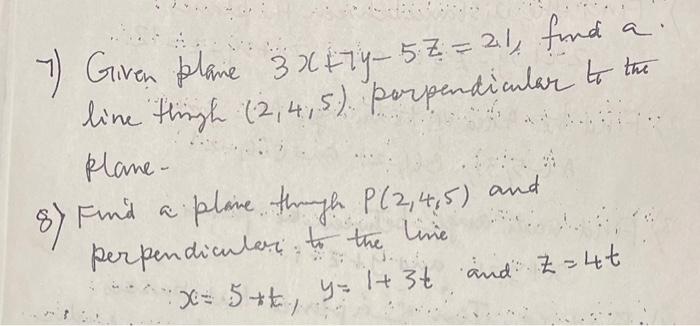 7) Given plane 3x+7y-5z=21, find a
line thrgh (2,4,5) perpendicular to the
plane-
8) Find a plane through P(2,4,5) and
perpendicular to the line
x= 5+t, y= 1+3t and z=4t